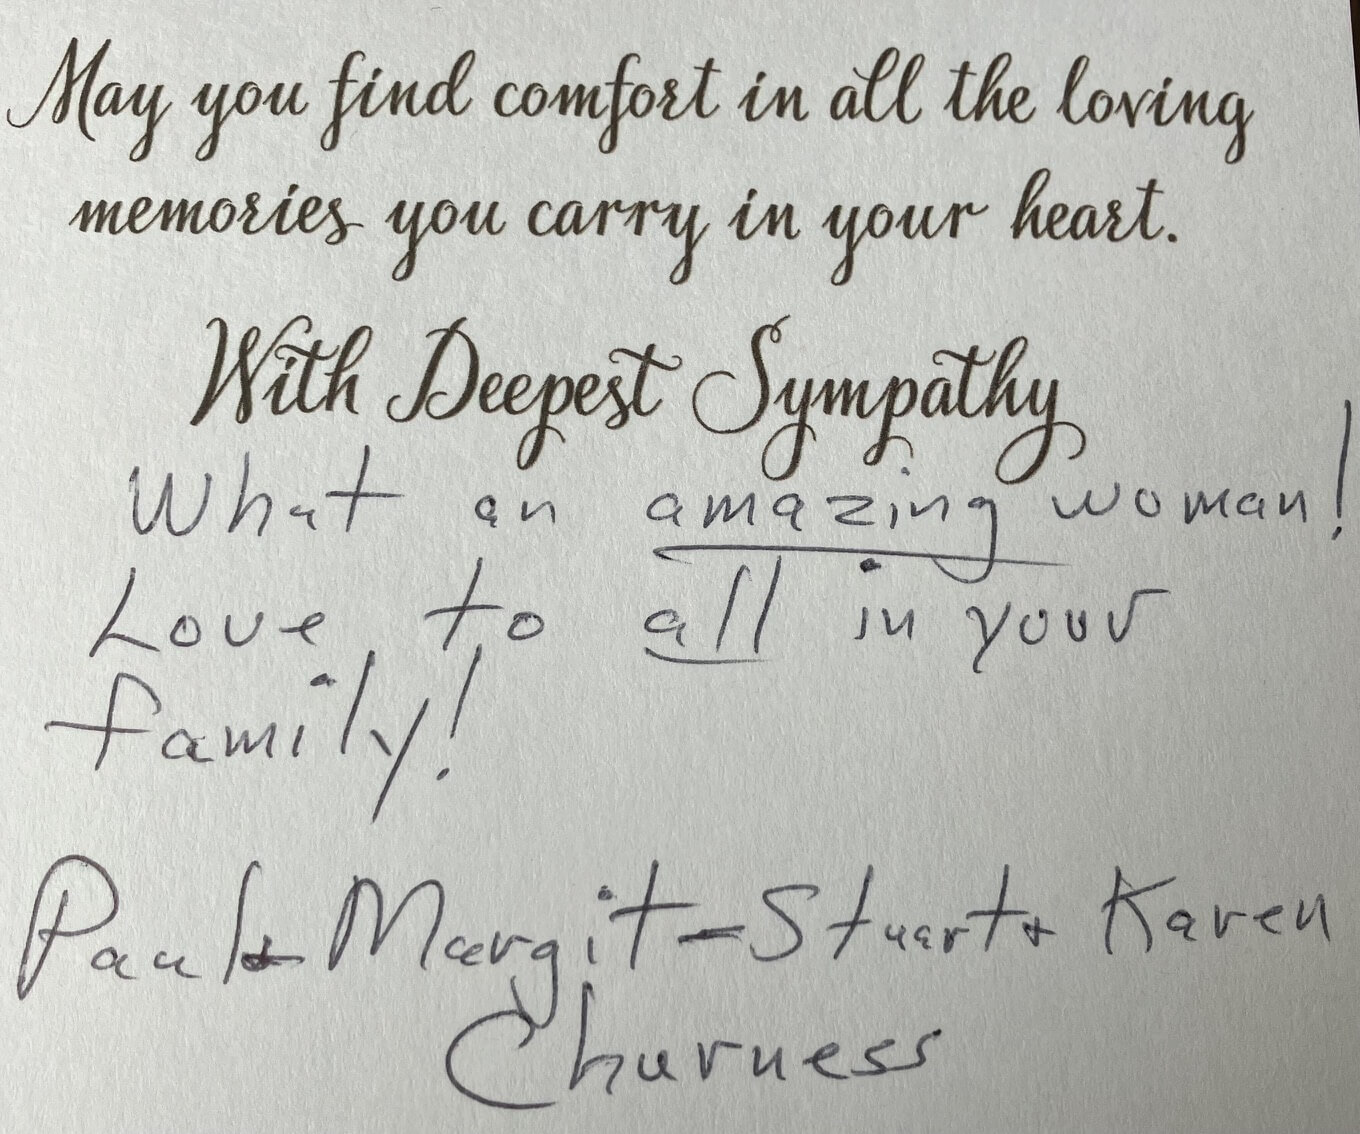 May you find comfort in all the loving
memories you carry in your heart.
With Deepest Sympathy
What an amazing woman!
Love to all in your
family!
Paul & Margit - Stuart & Karen
Churness